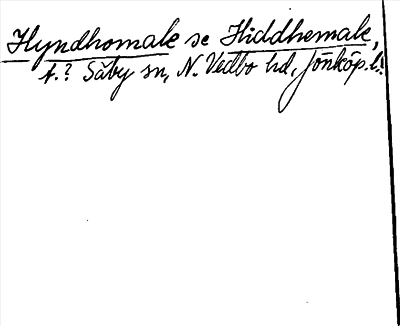 Hyndhomale se Hiddhemale,
t.? Säby sn, N. Vedbo hd, Jönköp. l.?